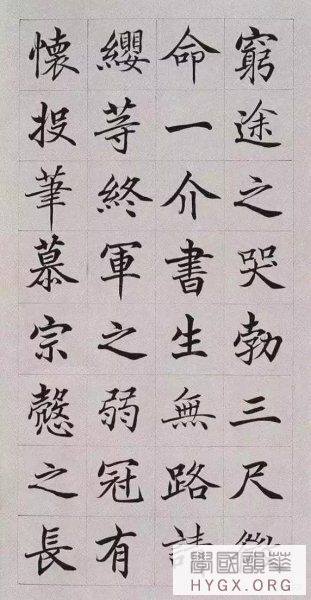 窮途之哭勃三尺微
命一介書生無路請
纓等終軍之弱冠有
懷投筆慕宗慤之長
學國韻華
HYGX.ORG